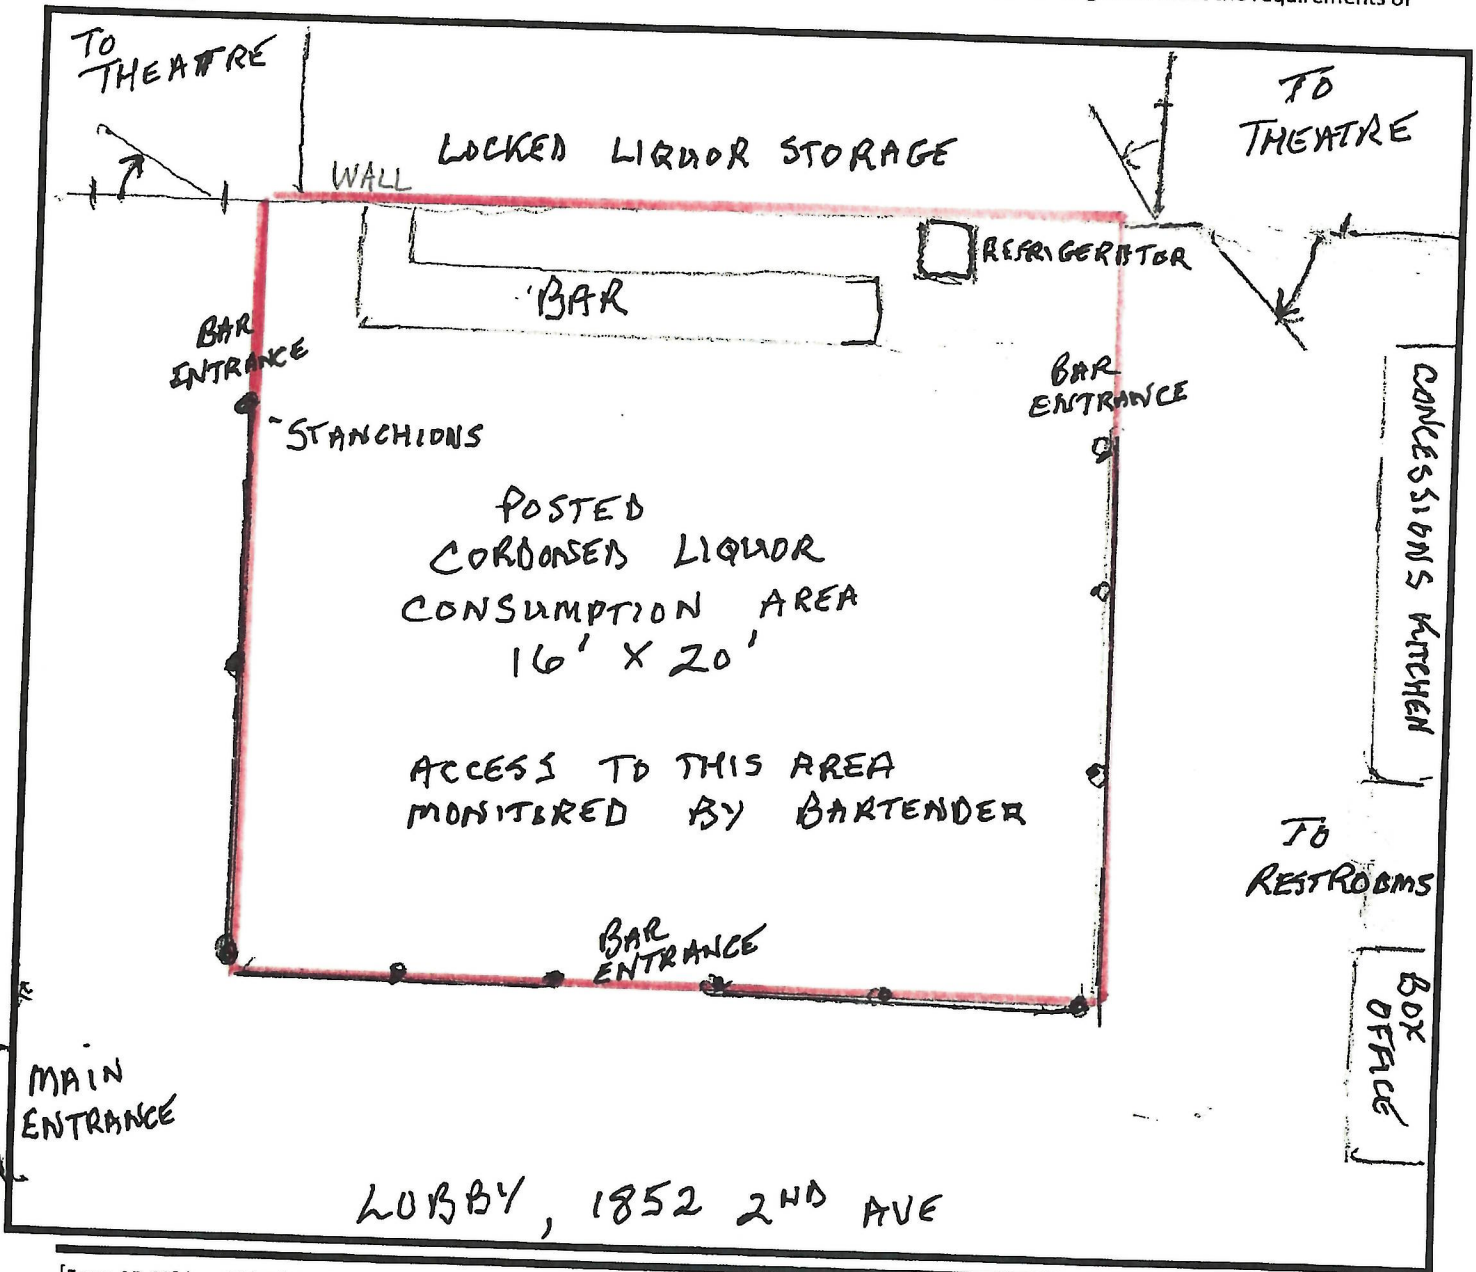 requirements of
TO
THEATRE
TO
THEATRE
LOCKED LIQUOR STORAGE
WALL
REFRIGERATOR
BAR
BAR
ENTRANCE
BAR
ENTRANCE
STANCHIONS
CONCESSIONS KITCHEN
POSTED
CORDONED LIQUOR
CONSUMPTION AREA
16' X 20'
ACCESS TO THIS AREA
MONITORED BY BARTENDER
TO
RESTROOMS
BAR
ENTRANCE
BOX
OFFICE
MAIN
ENTRANCE
LOBBY, 1852 2ND AVE